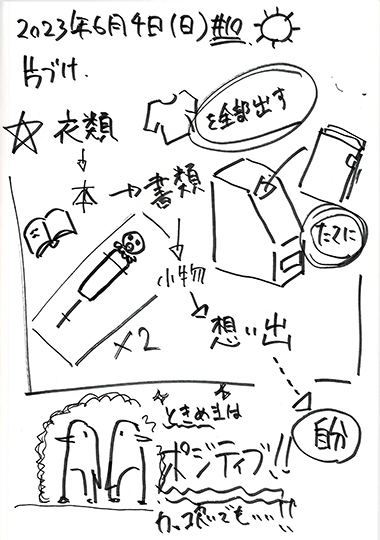 2023年6月4日(日) #10
片づけ.
☆ 衣類
を全部出す
本 → 書類
たてに
小物
×2
想い出
ときめきは
自分
ポジティブ!!
でも…!!